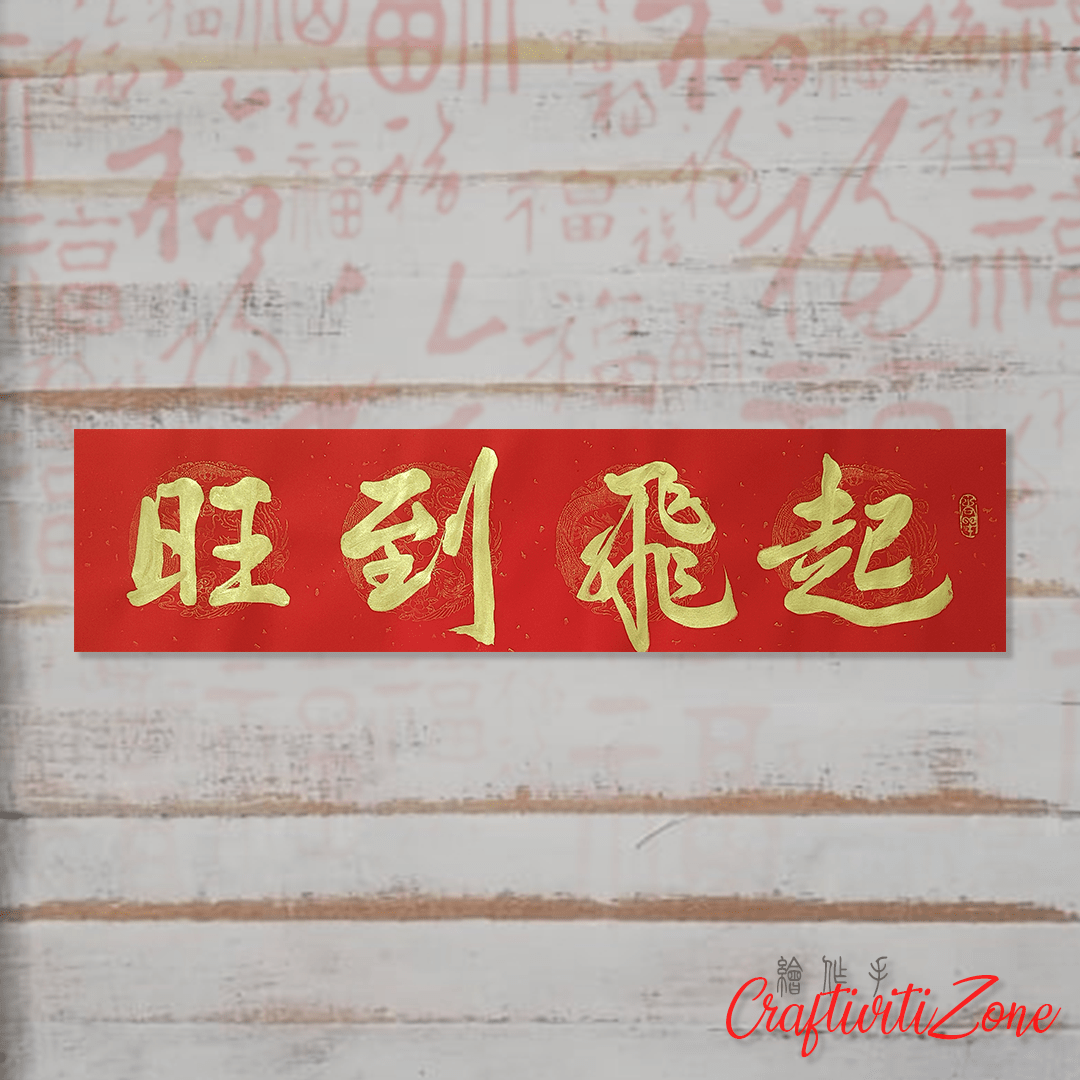 旺到飛起
繪作手
CraftivitiZone